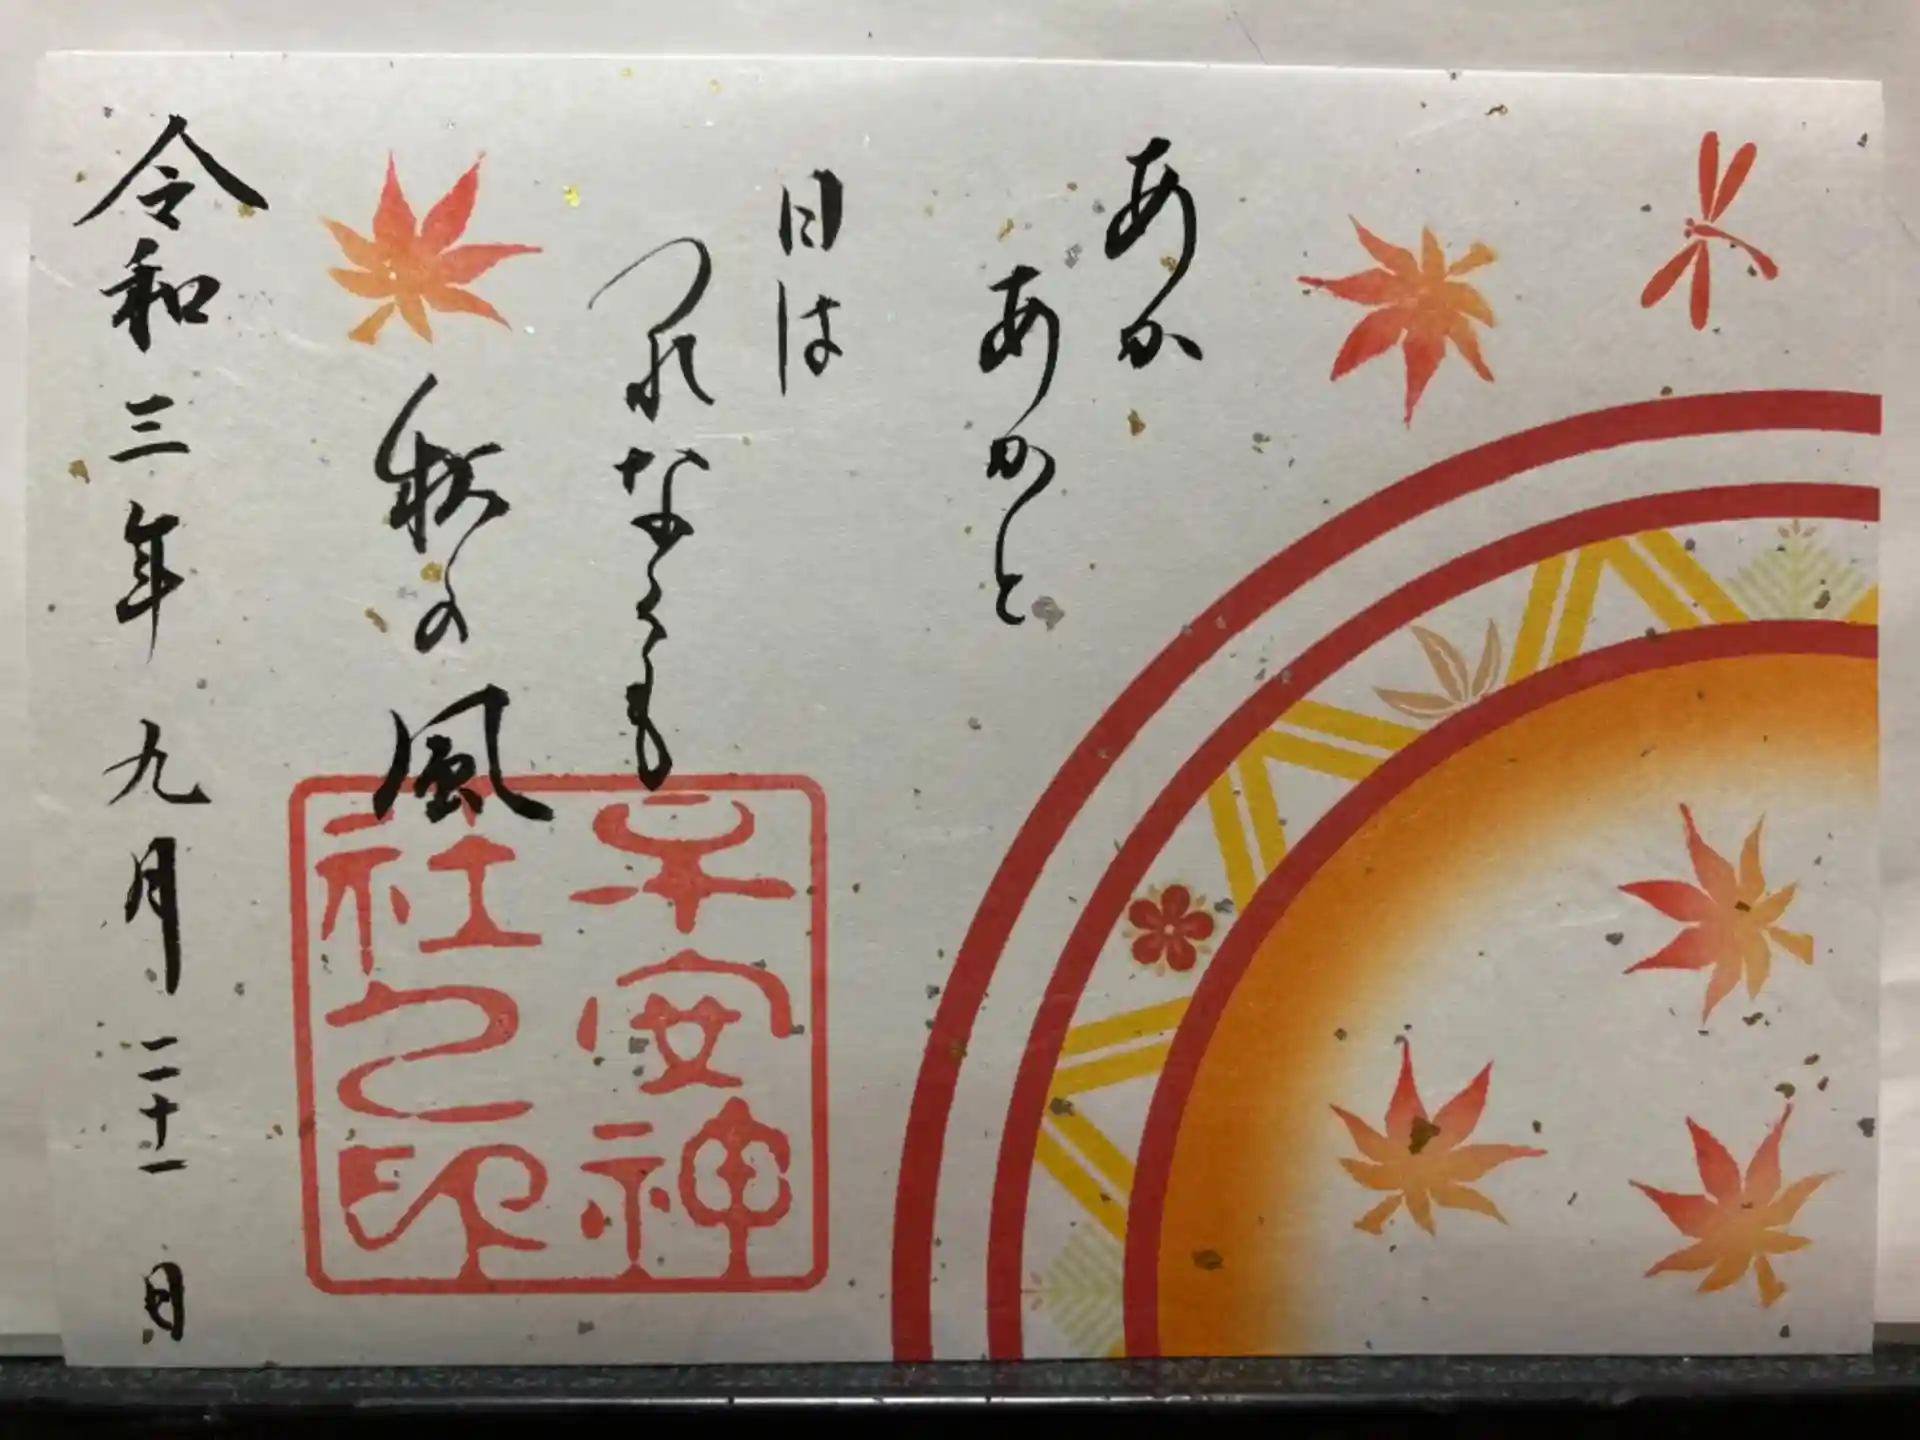 あか
あかと
日は
つれなくも
秋の風
子安神
社之印
令和三年九月二十一日